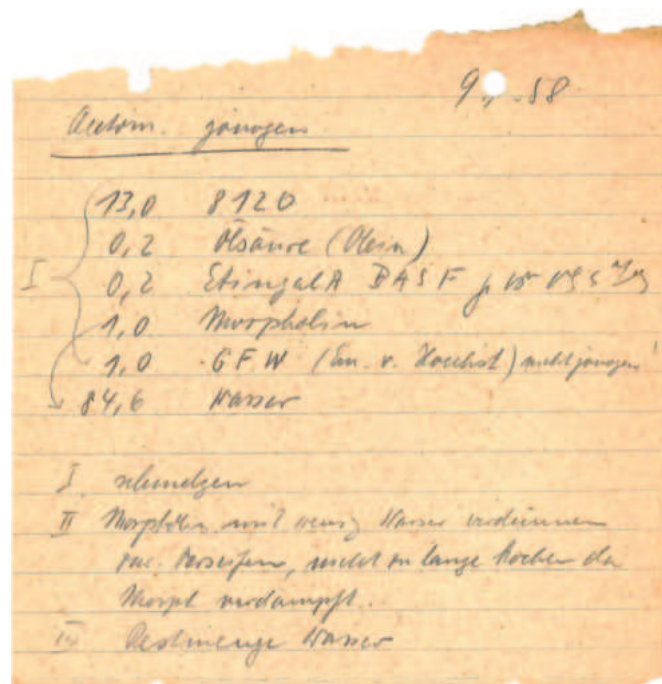 9. .58
13,0 8120
0,2 Ölsäure (Olein)
0,2 Etingal A BASF
1,0 Morpholin
I 1,0 GFW (Em. v. Hoechst) nicht
84,6 Wasser
I schmelzen
II Morpholin mit wenig Wasser verdünnen
zur Verseifen, nicht zu lange kochen da
Morph verdampft.
III Restmenge Wasser